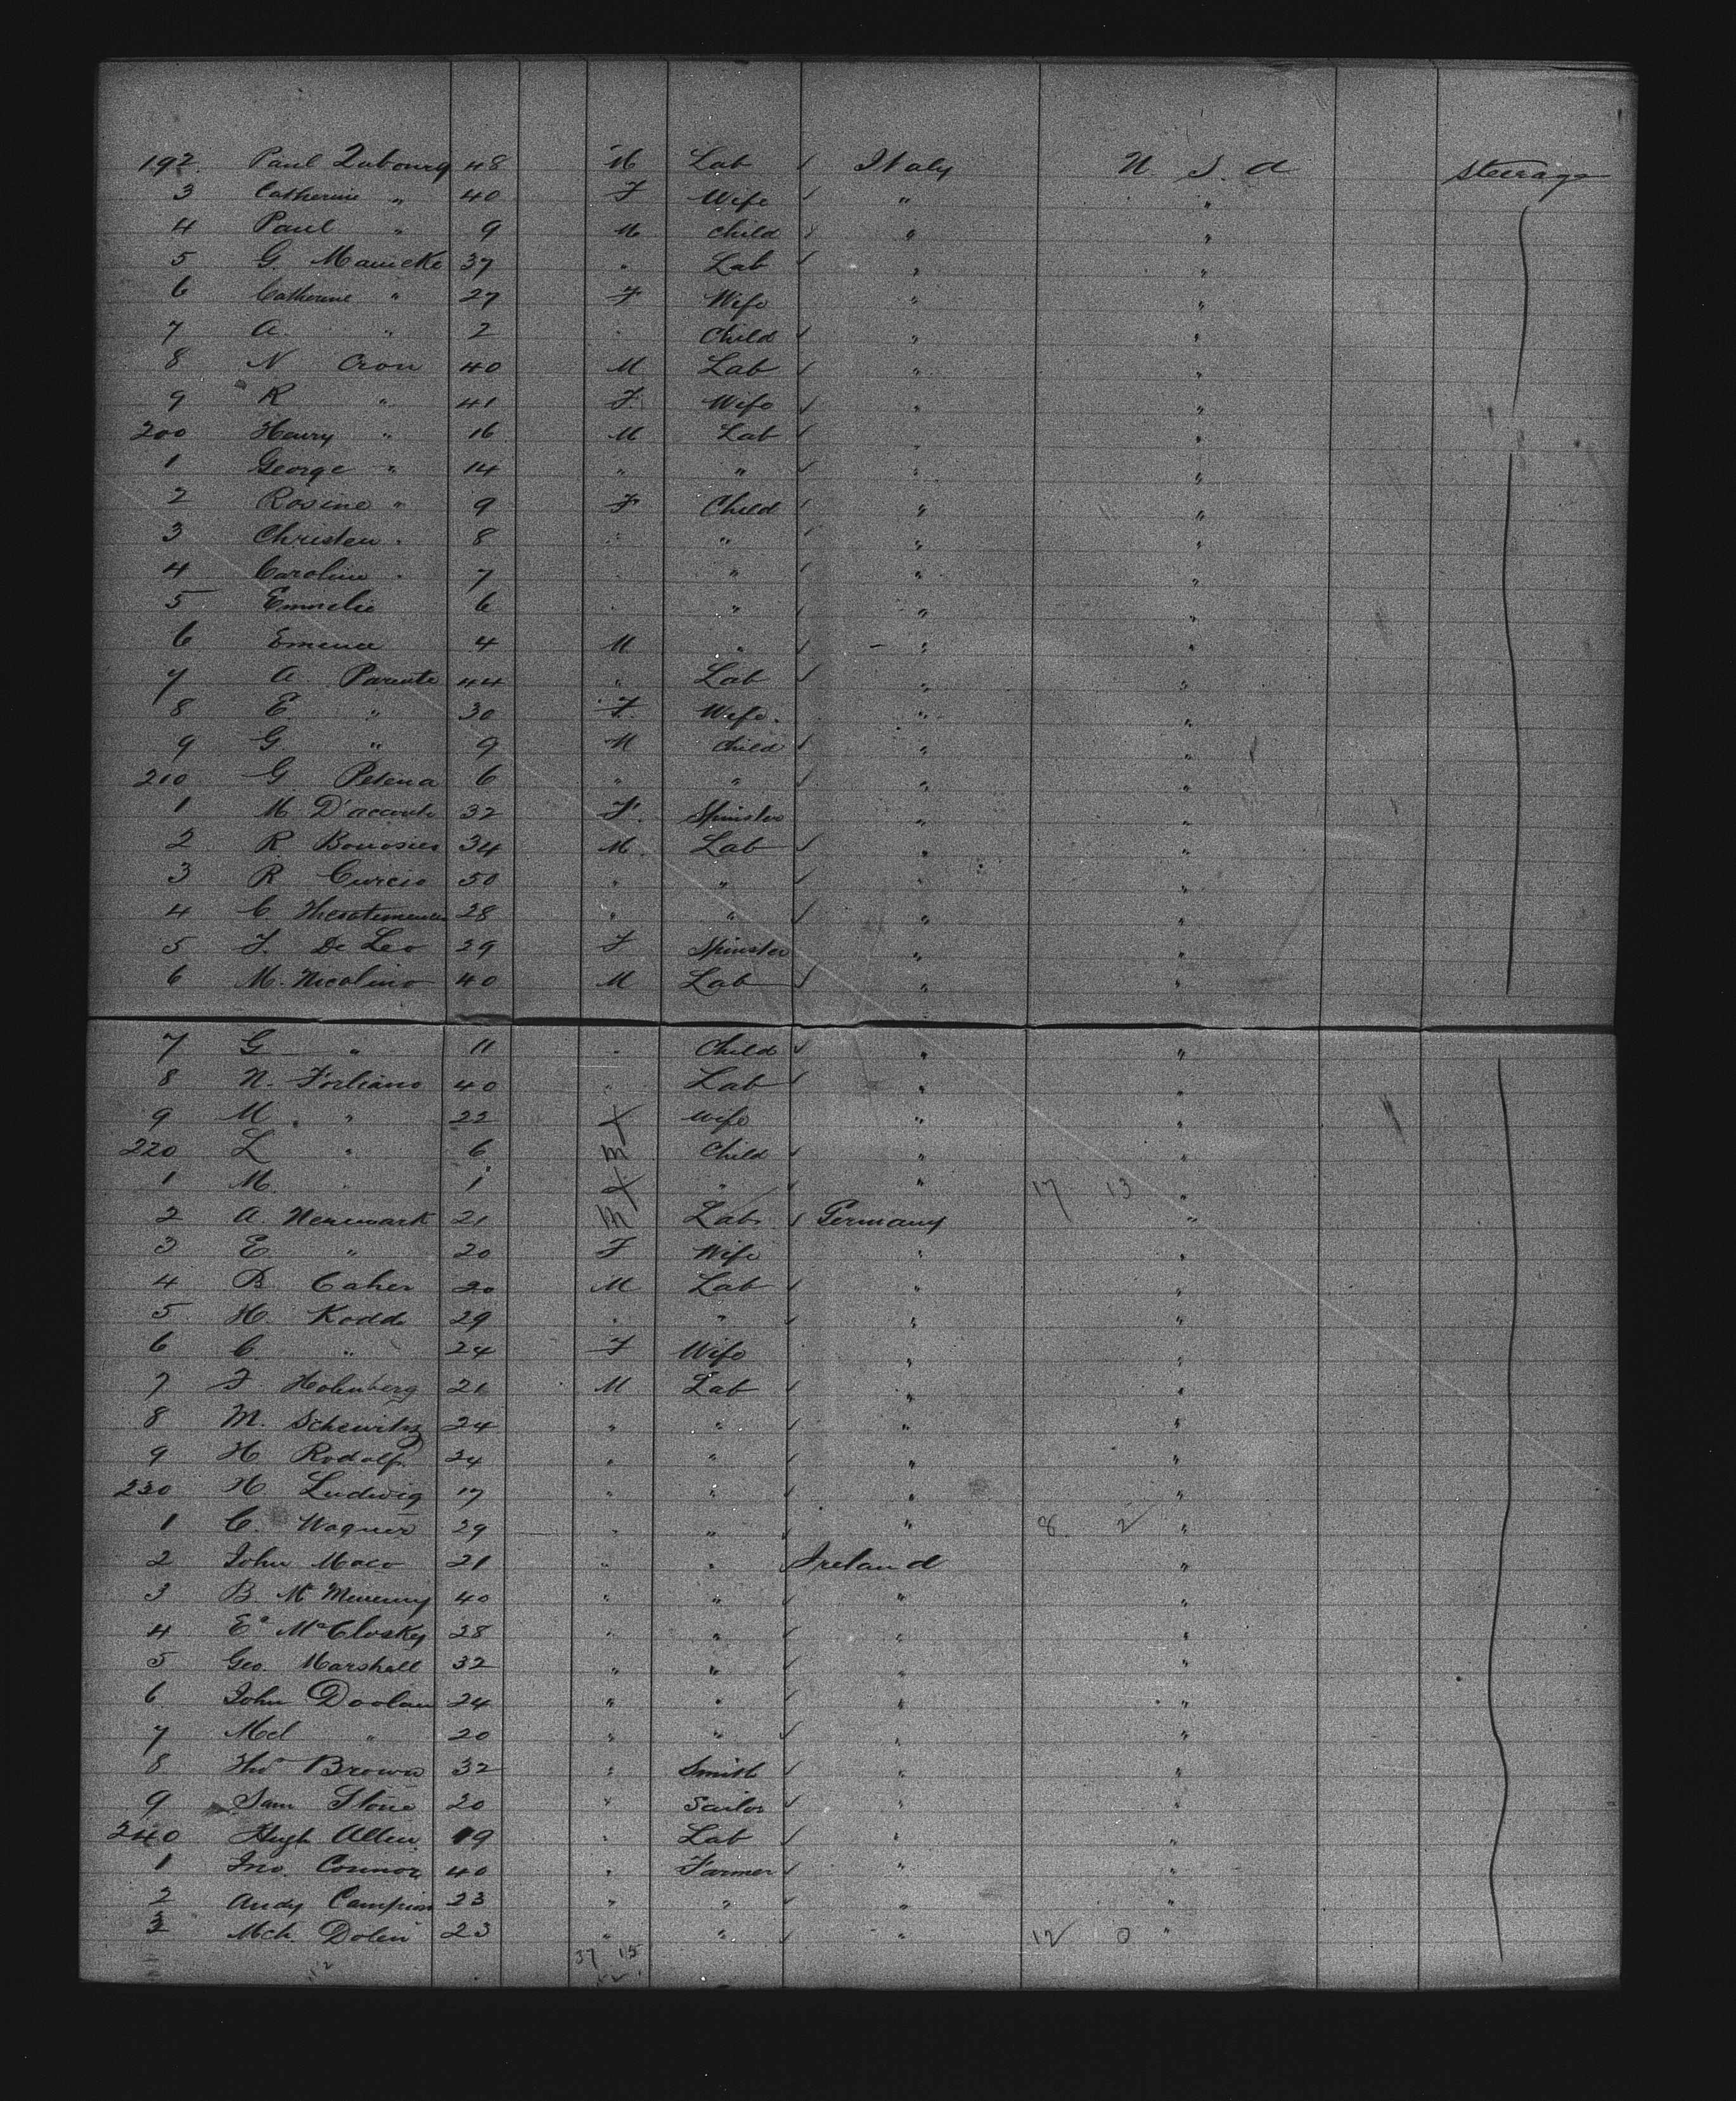 192. Paul Dubourg 48 M Lab ✓ Italy U. S. A Steerage
3 Catherine " 40 F Wife ✓ " "
4 Paul " 9 M Child " "
5 G. Manicke 37 " Lab ✓ " "
6 Catherine " 27 F Wife " "
7 A. " 2 " Child ✓ " "
8 N Cron 40 M Lab ✓ " "
9 R " 41 F Wife ✓ " "
200 Henry " 16 M Lab ✓ " "
1 George " 14 " " ✓ " "
2 Rosine " 9 F Child ✓ " "
3 Christen " 8 " " ✓ " "
4 Caroline " 7 " " ✓ " "
5 Emmelie 6 " " ✓ " "
6 4 M " ✓ " "
7 A. Parente 44 " Lab ✓ " "
8 E " 30 F. Wife. " "
9 G. " 9 M Child ✓ " "
210 G Petena 6 " " ✓ " "
1 M. 32 F. Spinster " "
2 R 34 M. Lab ✓ " "
3 R Curcio 50 " " ✓ " "
4 C. 28 " " ✓ " "
5 F. De Leo 29 F Spinster " "
6 M. Nicolino 40 M Lab ✓ " "
7 G " 11 " Child ✓ " "
8 N. Forliano 40 " Lab ✓ " "
9 M. " 22 Wife " "
220 L " 6 m Child ✓ " "
1 M. " 1 " ✓ " 17 13 "
2 A. Nenwark 21 m Lab. ✓ Germany "
3 E " 20 F Wife " "
4 B Caher 20 M Lab ✓ " "
5 H. Kodd 29 " " ✓ " "
6 C " 24 F Wife " "
7 F Holmberg 21 M Lab ✓ " "
8 M. Schewitz 24 " " ✓ " "
9 H Rodolf 24 " " ✓ " "
230 H. Ludwig 17 " " ✓ " "
1 C. Wagner 29 " " ✓ " 8 2 "
2 John Maco 21 " " Ireland "
3 B. Mc 40 " " ✓ " "
4 Ed McClosky 28 " " ✓ " "
5 Geo. Marshall 32 " " ✓ " "
6 John Doolan 24 " " ✓ " "
7 Mcl " 20 " " ✓ " "
8 Thos Brown 32 " Smith ✓ " "
9 Sam Stone 20 " Sailor ✓ " "
240 Hugh Allen 19 " Lab ✓ " "
1 Jno. Connor 40 " Farmer ✓ " "
2 Andy Campion 23 " " ✓ " "
3 Mch. Dolen 23 " " ✓ " 12 0 "
37 15